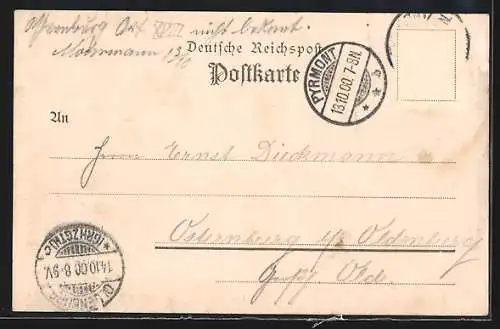 nicht bekannt.
Mohrmann 13/10
Deutsche Reichspost
Postkarte
PYRMONT
13.10.00. 7-8N.
An
Herrn Ernst Dieckmann
Osternburg b/ Oldenburg
Großh. Old.
14.10.00. 8-9V.